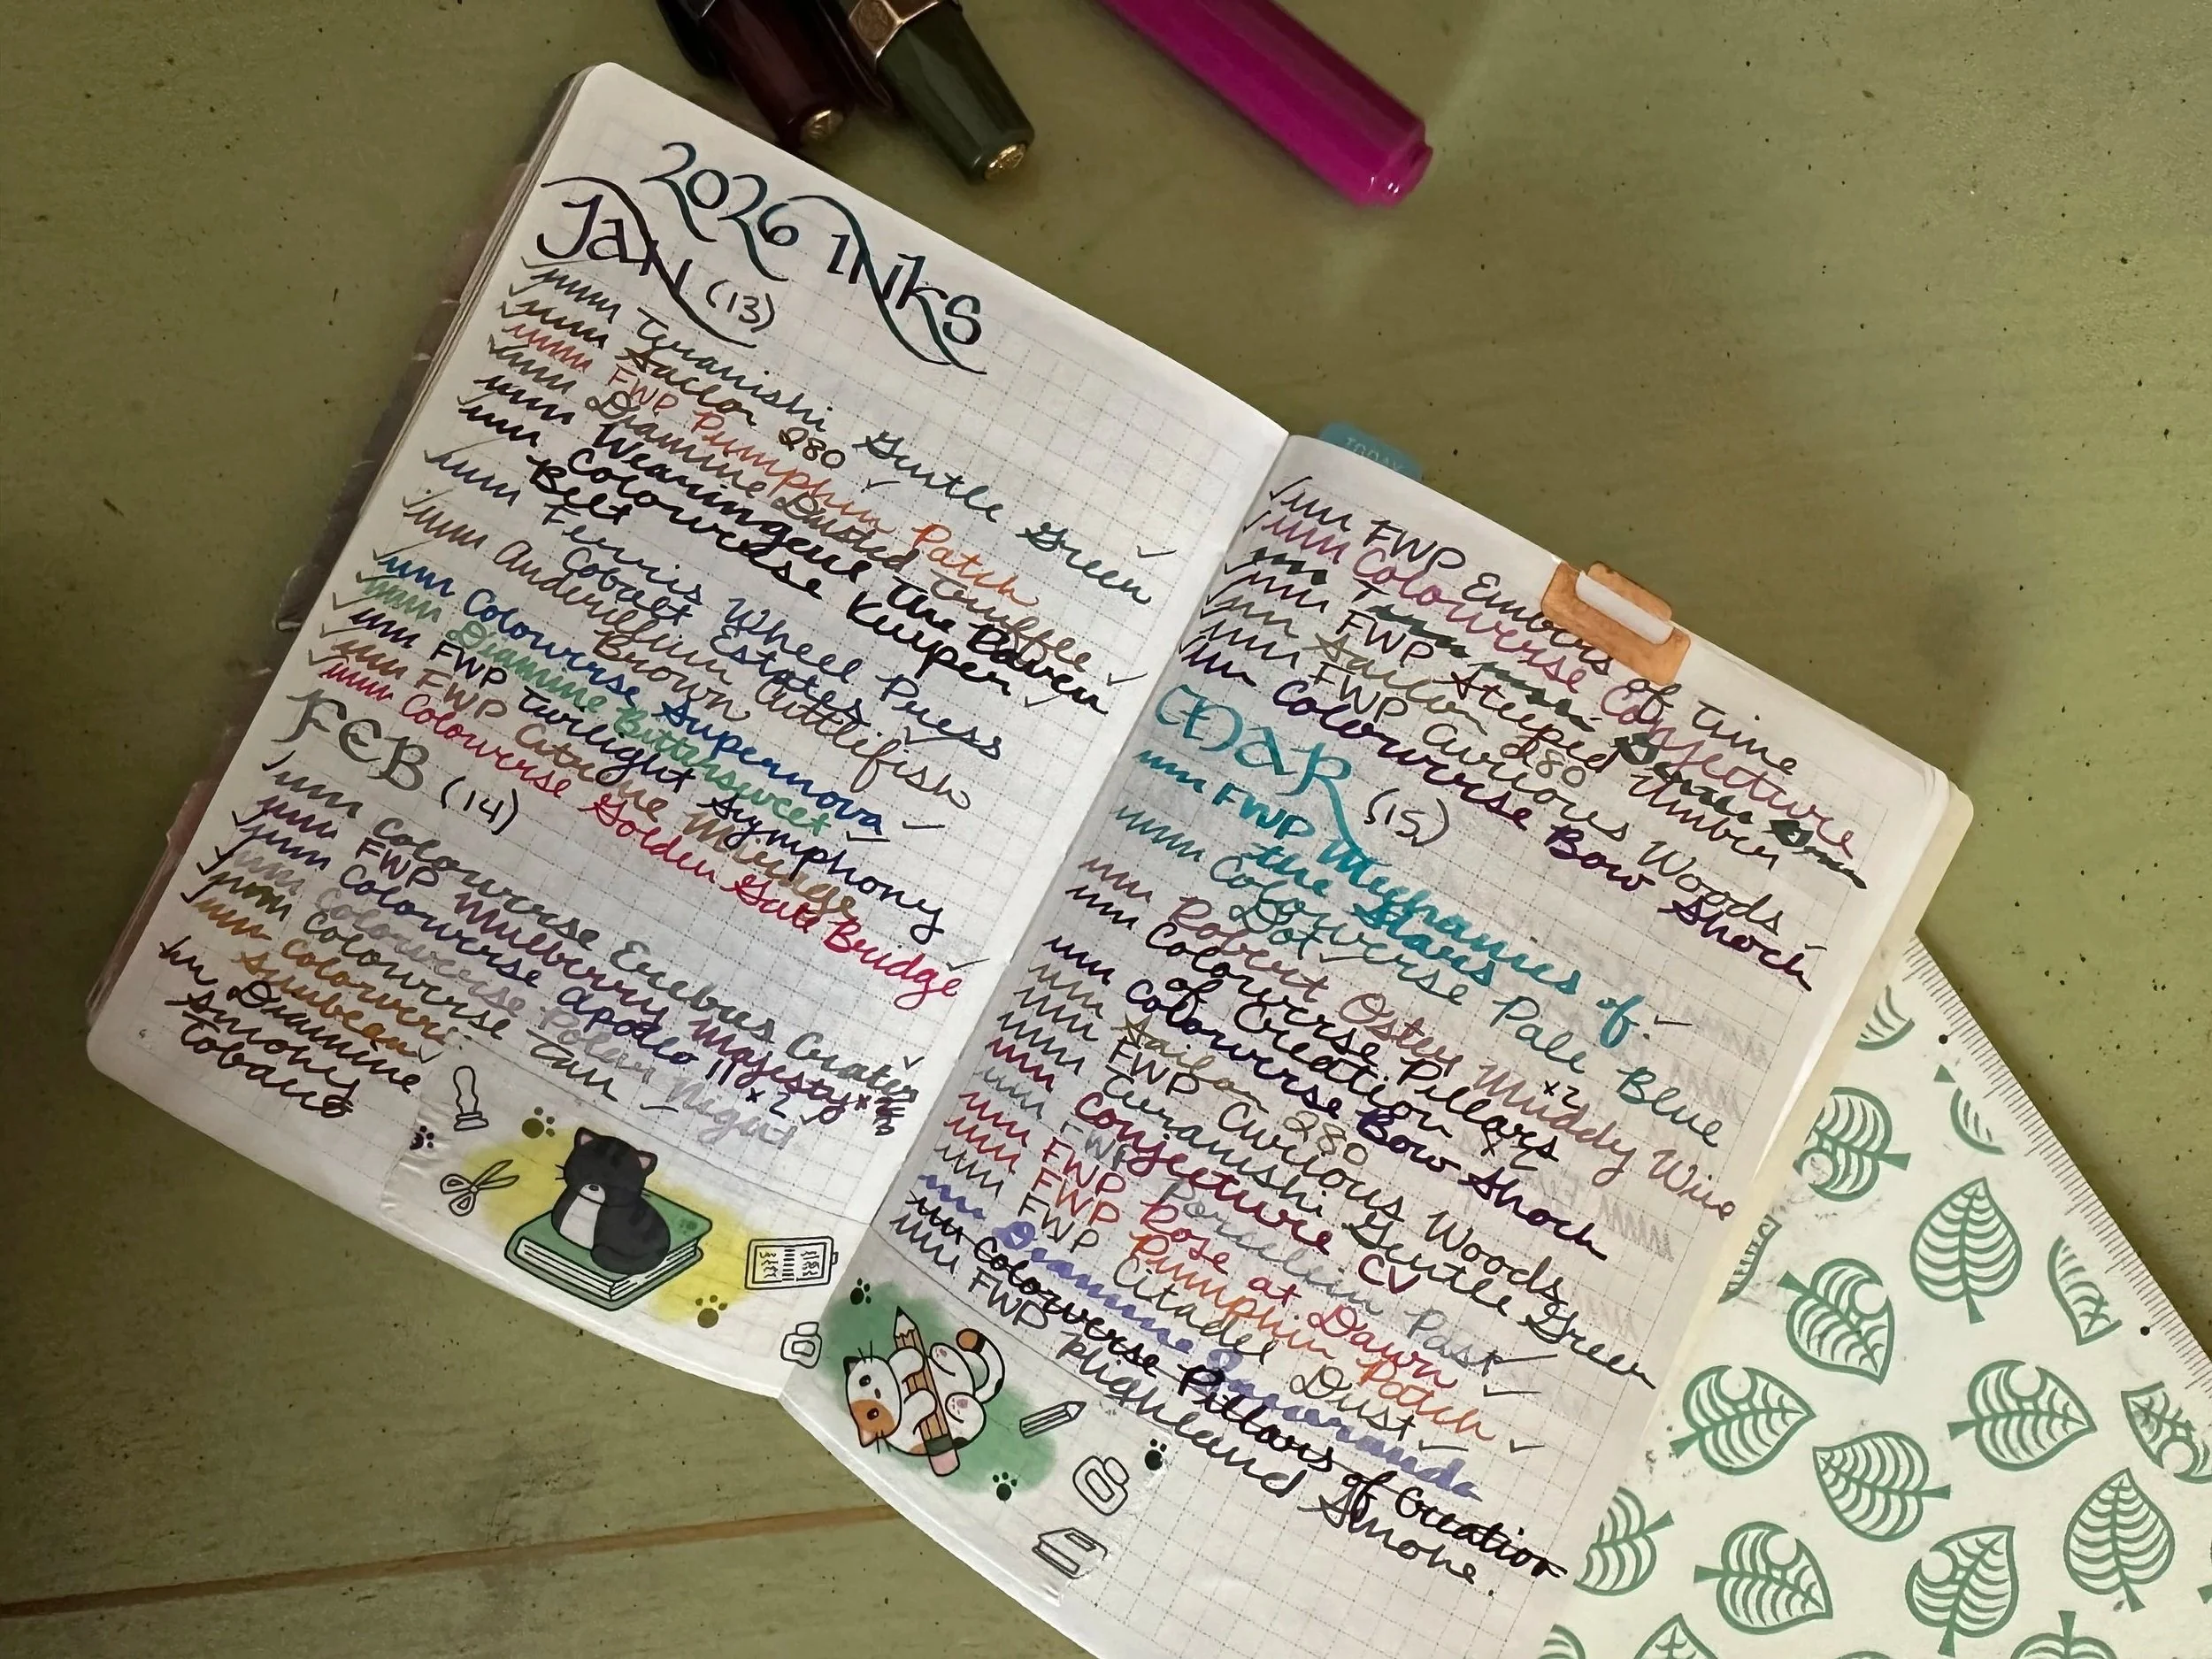 2026 INKS
JAN (13)
Teranishi Gentle Green
Sailor 280
FWP Pumpkin Patch
Diamine Dusted Truffle
Wearingeul The Raven
Colorverse Kuiper
Belt
Ferris Wheel Press
Cobalt Estates
Anderillium Cuttlefish
Brown
Colorverse Supernova
Diamine Bittersweet
FWP Twilight Symphony
FWP Citrine Mirage
Colorverse Golden Gate Bridge
FEB (14)
Colorverse Erebus Crater
FWP Mulberry Majesty
Colorverse Apollo 11 x2
Colorverse Polar Night
Colorverse Tau
Colorverse
Sunbeam
Diamine
Smoky
Tobacco
TODAY
FWP Embers of Time
Colorverse Conjecture
FWP Steeped Umber
Sailor 280
FWP Curious Woods
Colorverse Bow Shock
MAR (15)
FWP Mechanics of
the Stars
Colorverse Pale Blue
Dot
Robert Oster Muddy Wine
Colorverse Pillars
of Creation x2
Colorverse Bow Shock
Sailor 280
FWP Curious Woods
Teranishi Gentle Green
Conjecture CV
FWP Porcelain Past
FWP Rose at Dawn
FWP Pumpkin Patch
FWP Citadel Dust
Diamine Jacaranda
Colorverse Pillars of Creation
FWP Highland Smoke